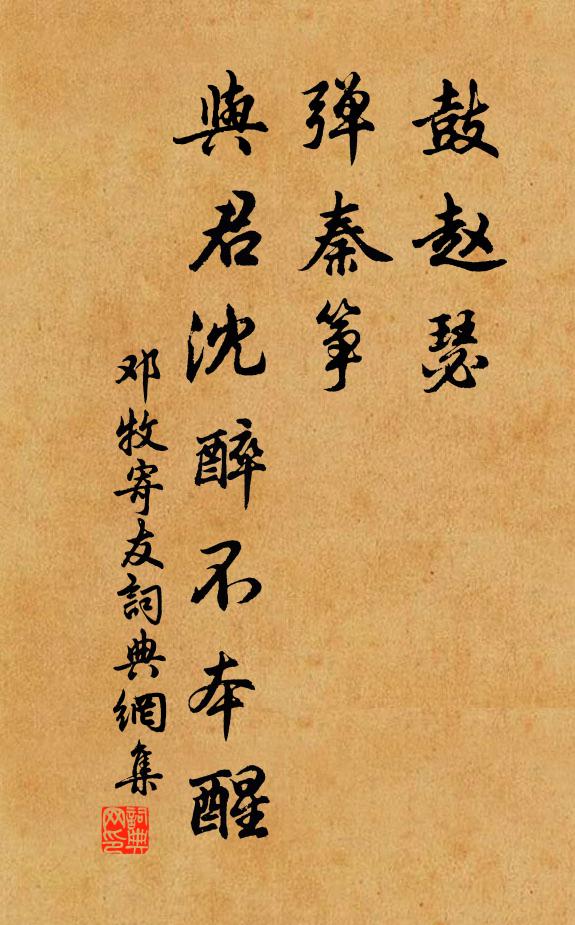 鼓赵瑟
弹秦筝
與君沈醉不本醒
邓牧寄友詞典網集
詞典网印